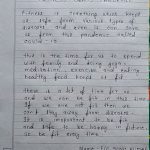 Fitness is something that keeps
us safe from various types of
diseases and even it can save
us from this pandemic called
covid-19
This is the time for us to spend
with family and doing yoga,
meditation, exercise and eating
healthy food keeps us fit
there is a lot of time for us
and we can be fit in this time
If we are not fit we
can't stay away from diseases
It is important to be fit
and safe to be happy in future.
so be fit every time
Name: